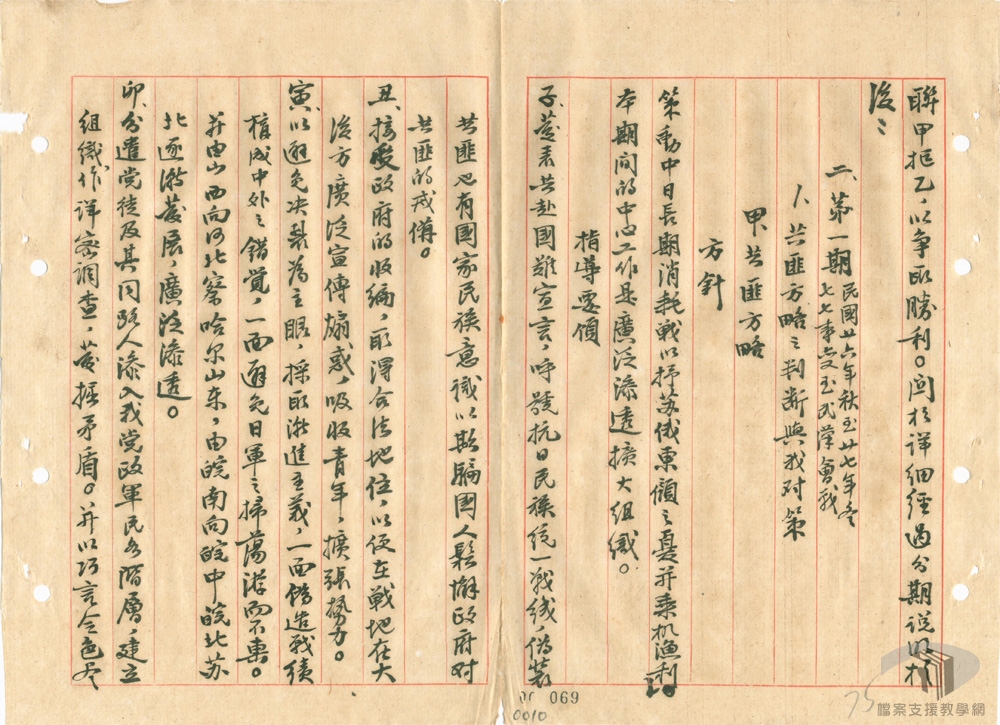 聯甲拒乙，以爭取勝利。関於詳細經過分期説明於
後：
二、第一期 民國廿六年秋至廿七年冬
七七事变至武漢會戰
1、共匪方略之判断與我对策
甲共匪方略
方針
策動中日長期消耗戰以掃苏俄東顧之憂并乘机漁利
本期間的中心工作是廣泛滲透擴大組織。
指導要領
子、發表共赴國難宣言，呼號抗日民族统一戰线，偽裝
共匪也有國家民族意識以欺騙國人鬆懈政府对
共匪的戒備。
丑、接受政府的收編，取得合法地位，以便在戰地在大
後方廣泛宣傳煽惑，吸收青年，擴張勢力。
寅、以避免决裂為主眼，採取漸進主義，一面偽造戰績
植成中外之錯覚，一面避免日軍之掃蕩游而不击。
并由山西向河北察哈尔山东，由皖南向皖中皖北苏
北逐漸發展，廣泛滲透。
卯、分遣党徒及其同路人滲入我党政軍民各階層，建立
組織，作详密调查，發掘矛盾。并以巧言令色尽
069
0010
75
檔案支援教學網